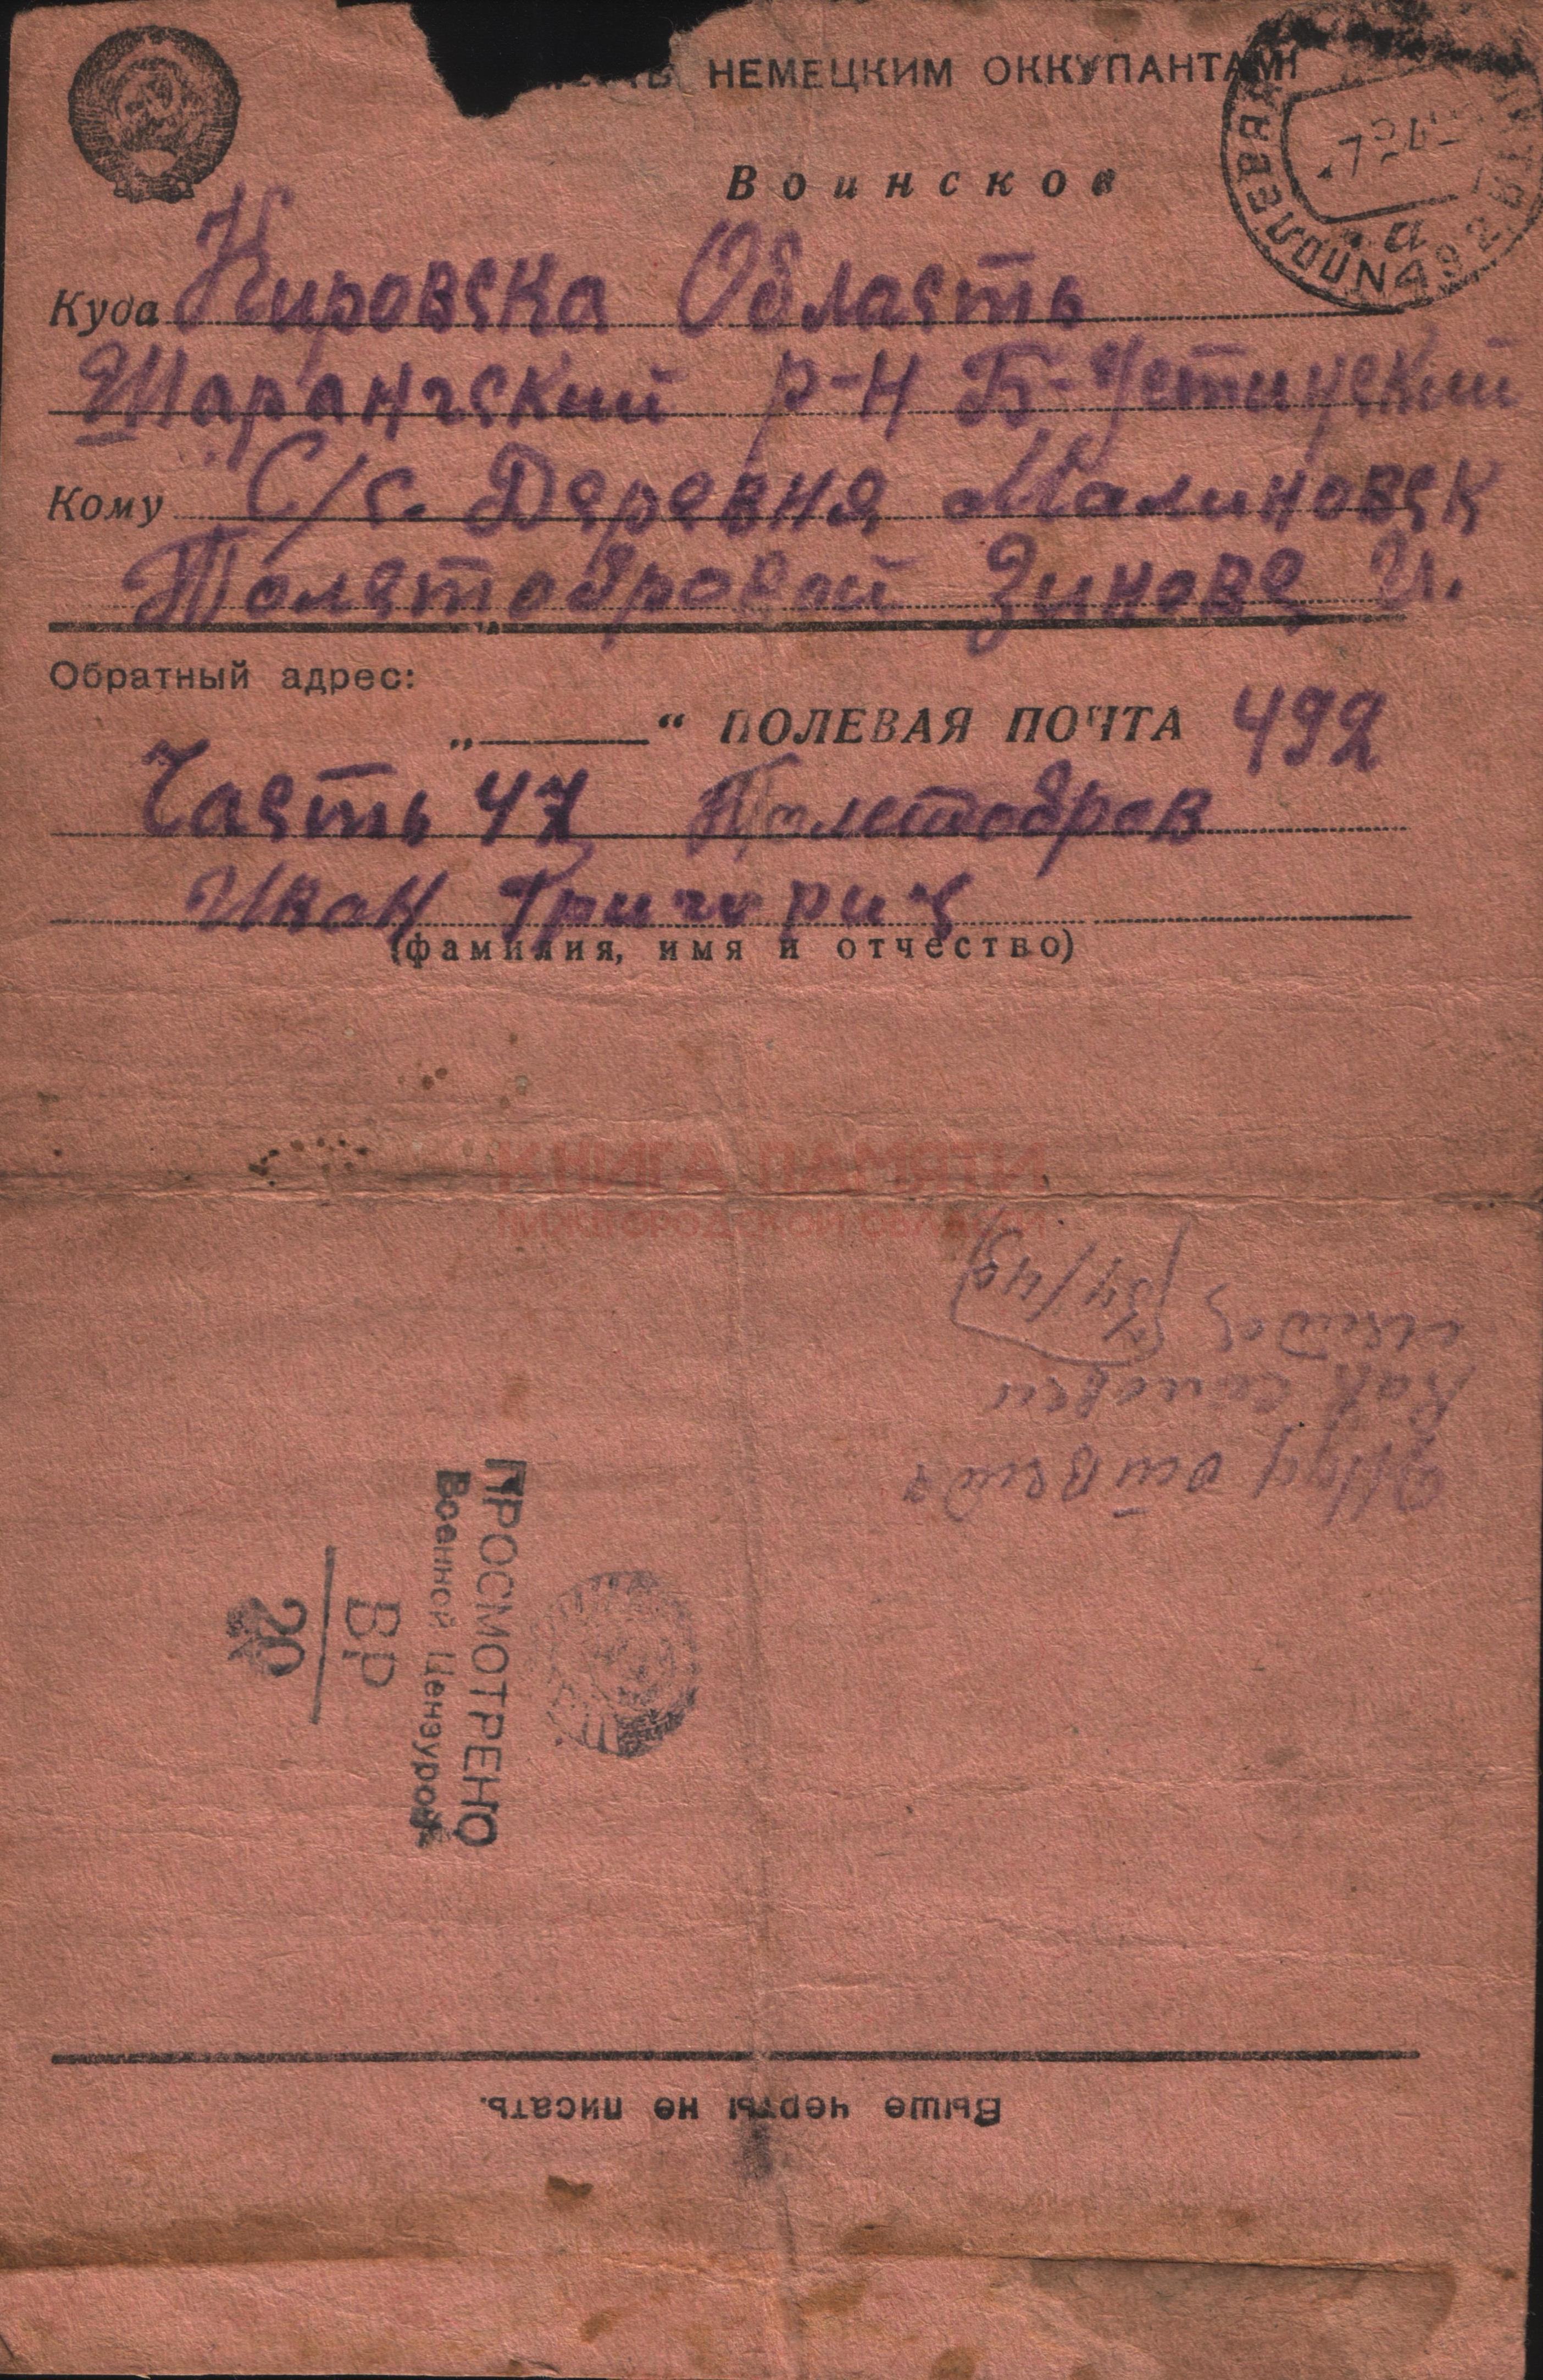 НЕМЕЦКИМ ОККУПАНТАМ!
Воинское
Куда Кировска Область
Шарангский р-н Б-Устинский
Кому С/с. Деревня Малиновск
Толстобровой Зинове И.
Обратный адрес:
„ “ ПОЛЕВАЯ ПОЧТА 492
Часть 47 Толстобров
Иван Григорич
(фамилия, имя и отчество)
КНИГА ПАМЯТИ
НИЖЕГОРОДСКОЙ ОБЛАСТИ
ПРОСМОТРЕНО
Военной Цензурой
ВР
20
Выше черты не писать.
ПОЛЕВАЯ
N492
а